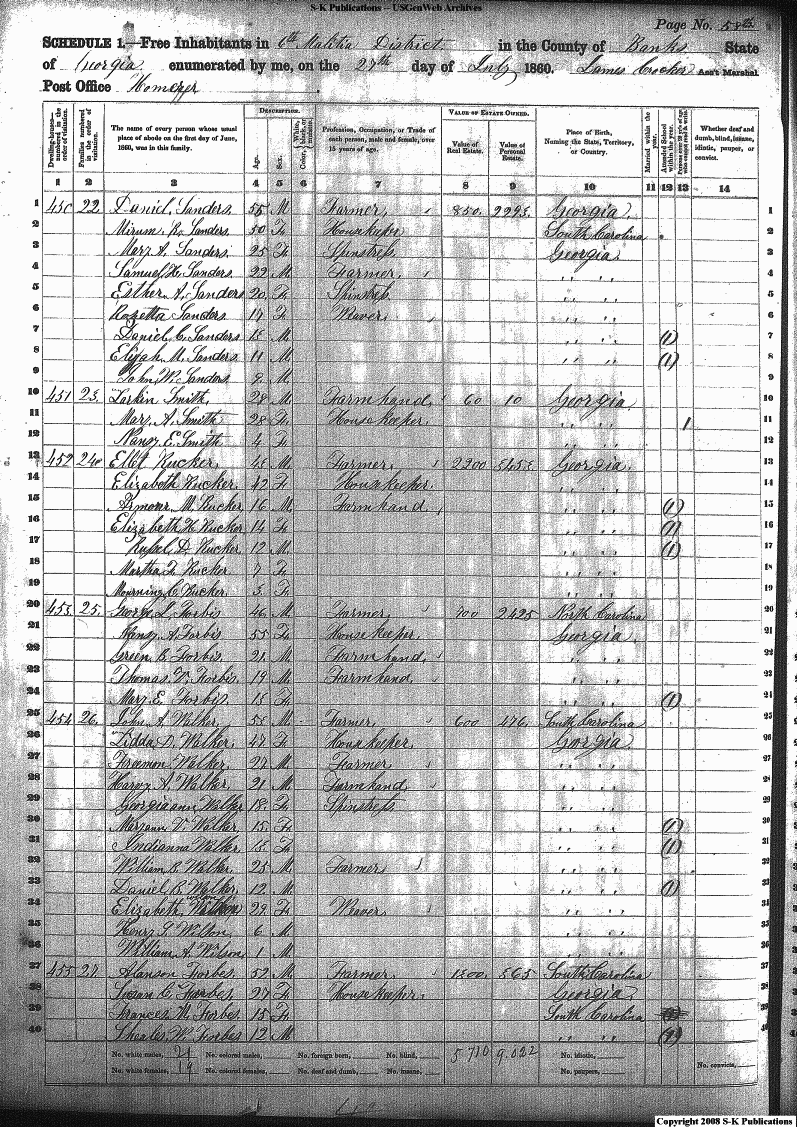 S-K Publications -- USGenWeb Archives
Page No. 58th
SCHEDULE 1.—Free Inhabitants in 6th Malitia District in the County of Banks State
of Georgia enumerated by me, on the 27th day of July 1860. James Crocker Ass't Marshal.
Post Office Homer
Dwelling-houses—numbered in the order of visitation. Families numbered in the order of visitation. The name of every person whose usual place of abode on the first day of June, 1860, was in this family. DESCRIPTION. Age. Sex. Color, Profession, Occupation, or Trade of each person, male and female, over 15 years of age. VALUE OF ESTATE OWNED. Value of Real Estate. Value of Personal Estate. Place of Birth, Naming the State, Territory, or Country. Married within the year. Attended School within the year. Whether deaf and dumb, blind, insane, idiotic, pauper, or convict.
1 2 3 4 5 6 7 8 9 10 11 12 13 14
1 450 22 Daniel Sanders 55 M Farmer 850 2295 Georgia 1
2 R. Sanders 50 F Housekeeper South Carolina 2
3 Mary A. Sanders 25 F Spinstress Georgia 3
4 Samuel H. Sanders 22 M Farmer " " 4
5 Esther A. Sanders 20 F Spinstress " " 5
6 Rozetta Sanders 17 F Weaver " " 6
7 Daniel C. Sanders 15 M " " (1) 7
8 Elijah M. Sanders 11 M " " (1) 8
9 John W. Sanders 9 M 9
10 451 23 Larkin Smith 28 M Farm hand 60 10 Georgia 10
11 Mary A. Smith 28 F House keeper " " 1 11
12 Nancy E. Smith 4 F " " 12
13 452 24 Rucker 45 M Farmer 2200 Georgia 13
14 Elizabeth Rucker 42 F House keeper " " 14
15 Armour M. Rucker 16 M Farm hand " " (1) 15
16 Elizabeth H. Rucker 14 F " " (1) 16
17 D. Rucker 12 M " " (1) 17
18 Martha F. Rucker 7 F " " 18
19 Mourning C. Rucker 3 F " " 19
20 453 25 George L. Forbis 46 M Farmer 700 2425 North Carolina 20
21 Nancy A. Forbis 55 F House keeper Georgia 21
22 Green B. Forbis 21 M Farm hand " " 22
23 Thomas V. Forbis 19 M Farm hand " " 23
24 Mary E. Forbis 15 F " " (1) 24
25 454 26 John A. Walker 55 M Farmer 600 476 South Carolina 25
26 Lidda D. Walker 47 F House keeper Georgia 26
27 Freemon Walker 22 M Farmer " " 27
28 Harvy A. Walker 21 M Farm hand " " 28
29 Georgiaann Walker 18 F Spinstress " " 29
30 Maryann V. Walker 15 F " " (1) 30
31 Indianna Walker F " " (1) 31
32 William B. Walker 25 M Farmer " " 32
33 Daniel B. Walker 12 M " " (1) 33
34 Elizabeth 29 F Weaver " " 34
35 Henry S. Wilson 6 M " " 35
36 William A. Wilson 1 M " " 36
37 455 27 Alanson Forbes 52 M Farmer 1500 565 South Carolina 37
38 Susan C. Forbes 27 F House keeper Georgia 38
39 Frances M. Forbes 15 F South Carolina 39
40 W. Forbes 12 M " " (1) 40
No. white males, 21 No. colored males, No. foreign born, No. blind, 5710 9.022 No. idiotic, No. convicts,
No. white females, 19 No. colored females, No. deaf and dumb, No. insane, No. paupers,
Copyright 2008 S-K Publications